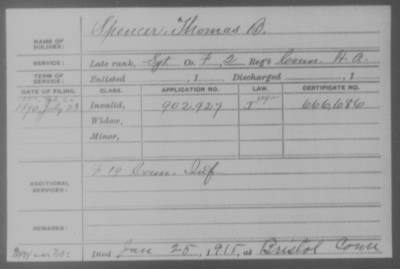 NAME OF SOLDIER: Spencer, Thomas B.
SERVICE: Late rank, Sgt Co. F, 2 Reg't Conn. H. A.
TERM OF SERVICE: Enlisted , 1 Discharged , 1
DATE OF FILING. CLASS. APPLICATION NO. LAW. CERTIFICATE NO.
1890 July 23 Invalid, 902,927 666,686
Widow,
Minor,
ADDITIONAL SERVICES: F 19 Conn. Inf
REMARKS:
Died Jan 25, 1915, at Bristol Conn